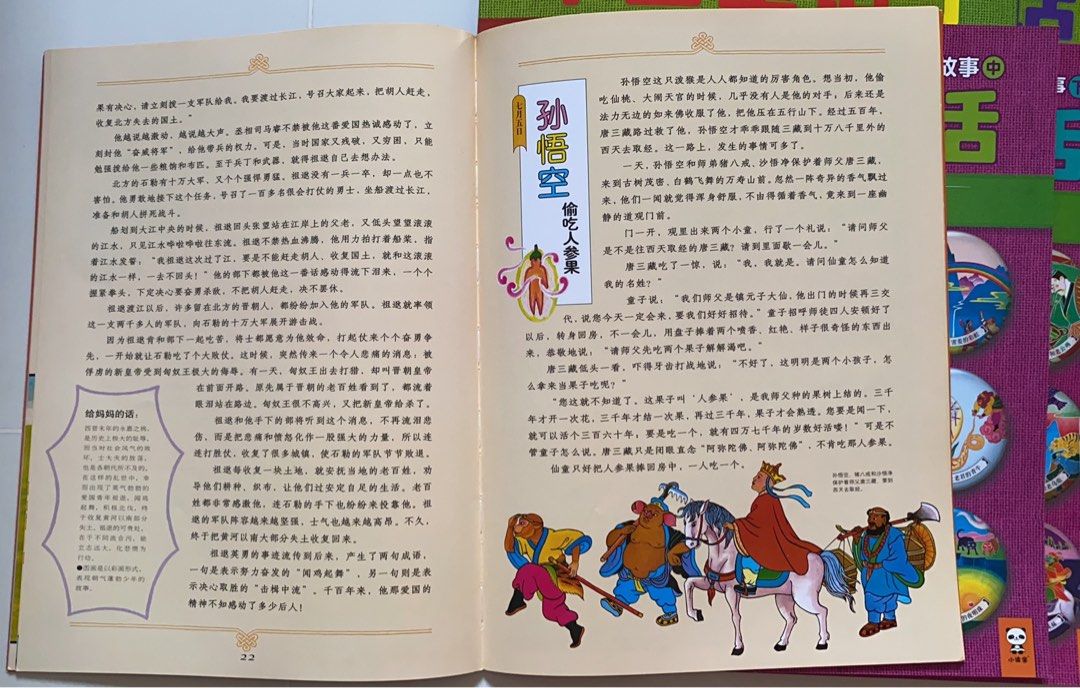 果有决心，请立刻拨一支军队给我。我要渡过长江，号召大家起来，把胡人赶走，
收复北方失去的国土。”
他越说越激动，越说越大声。丞相司马睿不禁被他这番爱国热诚感动了，立
刻封他“奋威将军”，给他带兵的权力。可是，当时国家又残破，又穷困，只能
勉强拨给他一些粮饷和布匹。至于兵丁和武器，就得祖逖自己去想办法。
北方的石勒有十万大军，又个个强悍勇猛。祖逖没有一兵一卒，却一点也不
害怕。他勇敢地接下这个任务，号召了一百多名很会打仗的勇士，坐船渡过长江，
准备和胡人拼死战斗。
船划到大江中央的时候，祖逖回头张望站在江岸上的父老，又低头望望滚滚
的江水，只见江水哗啦哗啦往东流。祖逖不禁热血沸腾，他用力拍打着船桨，指
着江水发誓：“我祖逖这次过了江，要是不能赶走胡人、收复国土，就和这滚滚
的江水一样，一去不回头！”他的部下都被他这一番话感动得流下泪来，一个个
握紧拳头，下定决心要奋勇杀敌，不把胡人赶走，决不罢休。
祖逖渡江以后，许多留在北方的晋朝人，都纷纷加入他的军队。祖逖就率领
这一支两千多人的军队，向石勒的十万大军展开游击战。
因为祖逖肯和部下一起吃苦，将士都愿意为他效命，打起仗来个个奋勇争
先，一开始就让石勒吃了个大败仗。这时候，突然传来一个令人悲痛的消息：被
俘虏的新皇帝受到匈奴王极大的侮辱。有一天，匈奴王出去打猎，却叫晋朝皇帝
在前面开路。原先属于晋朝的老百姓看到了，都流着
眼泪站在路边。匈奴王很不高兴，又把新皇帝给杀了。
祖逖和他手下的部将听到这个消息，不再流泪悲
伤，而是把悲痛和愤怒化作一股强大的力量，所以连
连打胜仗，收复了很多城镇，使石勒的军队节节败退。
祖逖每收复一块土地，就安抚当地的老百姓，劝
导他们耕种、织布，让他们过安定自足的生活。老百
姓都非常感激他，连石勒的手下也纷纷来投靠他。祖
逖的军队阵容越来越坚强，士气也越来越高昂。不久，
终于把黄河以南大部分失土收复回来。
祖逖英勇的事迹流传到后来，产生了两句成语，
一句是表示努力奋发的“闻鸡起舞”，另一句则是表
示决心取胜的“击楫中流”。千百年来，他那爱国的
精神不知感动了多少后人！
给妈妈的话：
西晋末年的永嘉之祸，
是历史上极大的耻辱。
因当时社会风气的败
坏，士大夫的放荡，
也是各朝代所不及的。
在这样的乱世中，幸
而出现了英气勃勃的
爱国青年祖逖，闻鸡
起舞，积极北伐，终
于收复黄河以南部分
失土。祖逖的可贵处，
在于不同流合污，能
立志远大，化悲愤为
行动。
●图画是以彩画形式，
表现朝气蓬勃少年的
故事。
22
七月五日
孙悟空
偷吃人参果
孙悟空这只泼猴是人人都知道的厉害角色。想当初，他偷
吃仙桃、大闹天宫的时候，几乎没有人是他的对手；后来还是
法力无边的如来佛收服了他，把他压在五行山下。经过五百年，
唐三藏路过救了他，孙悟空才乖乖跟随三藏到十万八千里外的
西天去取经。这一路上，发生的事情可多了。
一天，孙悟空和师弟猪八戒、沙悟净保护着师父唐三藏，
来到古树茂密、白鹤飞舞的万寿山前。忽然一阵奇异的香气飘过
来，他们一闻就觉得浑身舒服，不由得循着香气，竟来到一座幽
静的道观门前。
门一开，观里出来两个小童，行了一个礼说：“请问师父
是不是往西天取经的唐三藏？请到里面歇一会儿。”
唐三藏吃了一惊，说：“我，我就是。请问仙童怎么知道
我的名姓？”
童子说：“我们师父是镇元子大仙，他出门的时候再三交
代，说您今天一定会来，要我们好好招待。”童子招呼师徒四人安顿好了
以后，转身回房，不一会儿，用盘子捧着两个喷香、红艳，样子很奇怪的东西出
来，恭敬地说：“请师父先吃两个果子解解渴吧。”
唐三藏低头一看，吓得牙齿打战地说：“不好了，这明明是两个小孩子，怎
么拿来当果子吃呢？”
“您这就不知道了。这果子叫‘人参果’，是我师父种的果树上结的。三千
年才开一次花，三千年才结一次果，再过三千年，果子才会熟透。您要是闻一下，
就可以活个三百六十年；要是吃一个，就有四万七千年的岁数好活喽！”可是不
管童子怎么说。唐三藏只是闭眼直念“阿弥陀佛、阿弥陀佛”，不肯吃那人参果。
仙童只好把人参果捧回房中，一人吃一个。
孙悟空、猪八戒和沙悟净
保护着师父唐三藏，要到
西天去取经。
故事中
话
小读客